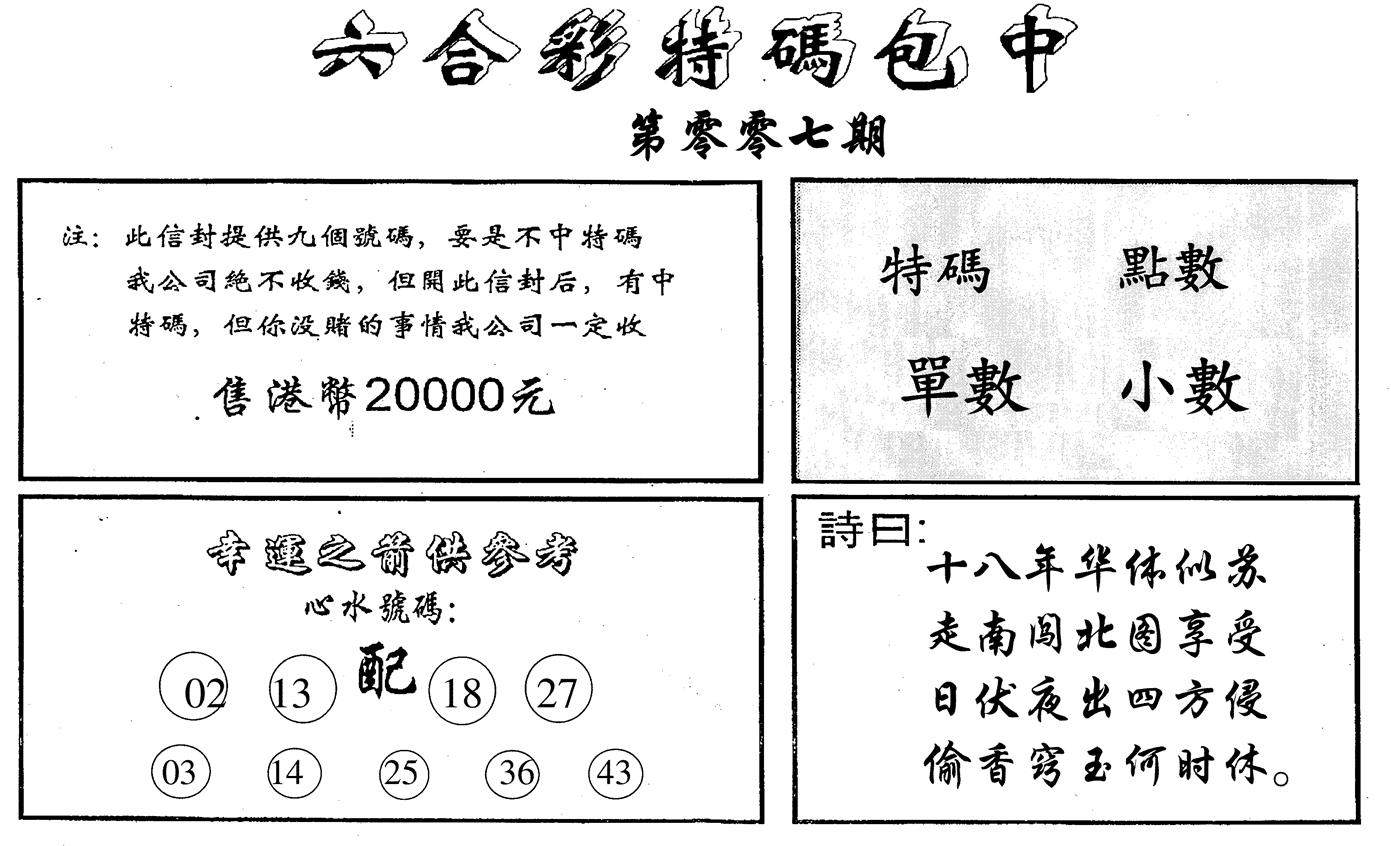 六合彩特碼包中
第零零七期
注：此信封提供九個號碼，要是不中特碼
我公司絶不收錢，但開此信封后，有中
特碼，但你没賭的事情我公司一定收
售港幣20000元
特碼 點數
單數 小數
幸運之箭供參考
心水號碼：
02 13 配 18 27
03 14 25 36 43
詩曰：
十八年华体似苏
走南闯北图享受
日伏夜出四方侵
偷香窍玉何时休。